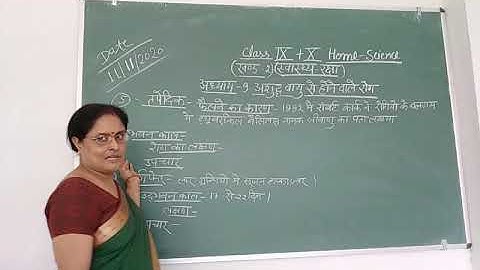 Date
11/11/2020
Class IX + X Home-Science
(खण्ड 2) (स्वास्थ्य रक्षा)
अध्याय - 9 अशुद्ध वायु से होने वाले रोग
तपेदिक:- फैलने का कारण:- 1882 में रोबर्ट कॉक ने रोगियों के बलगम
में नामक जीवाणु का पता लगाया
काल:-
रोग का लक्षण
उपचार
लार ग्रन्थियों में सूजन
काल:- 17 से 22 दिन।
लक्षण:-